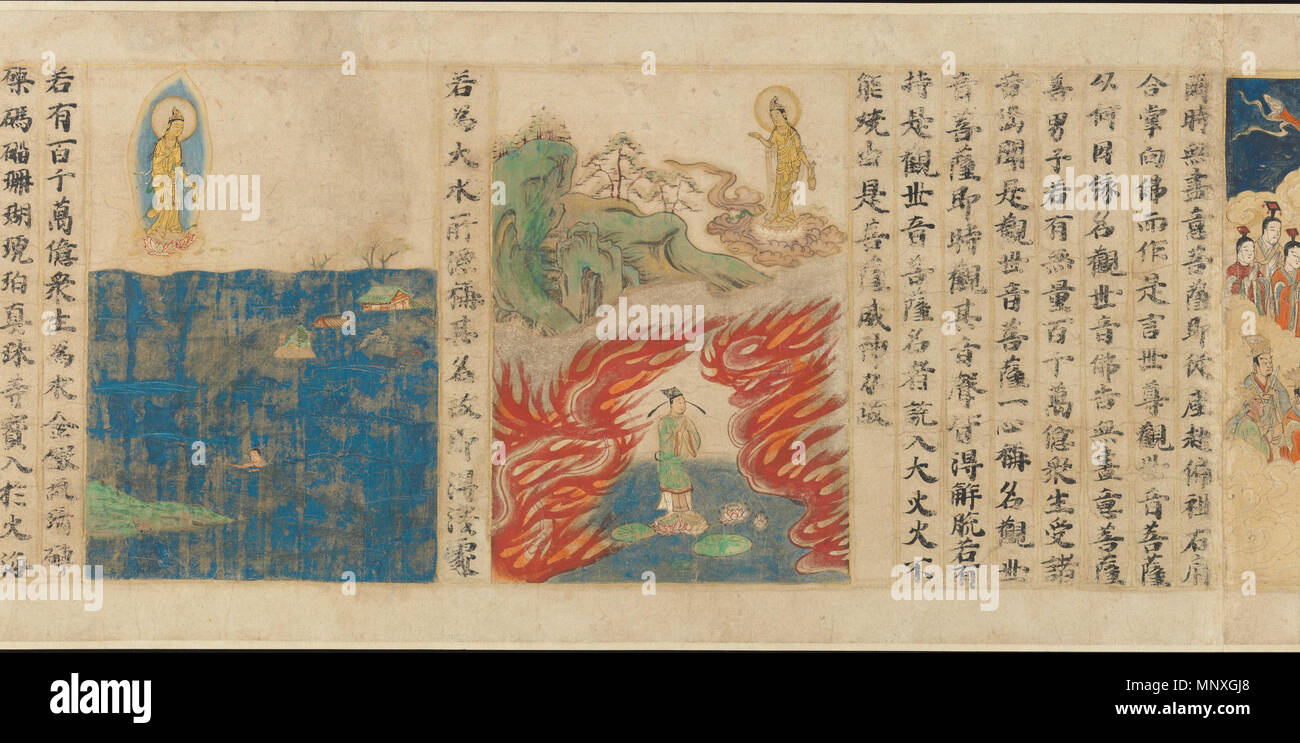 爾時無盡意菩薩即從座起偏袒右肩
合掌向佛而作是言世尊觀世音菩薩
以何因緣名觀世音佛告無盡意菩薩
善男子若有無量百千萬億衆生受諸
苦惱聞是觀世音菩薩一心稱名觀世
音菩薩即時觀其音聲皆得解脫若有
持是觀世音菩薩名者設入大火火不
能燒由是菩薩威神力故
若為大水所漂稱其名故即得淺處
若有百千萬億衆生為求金銀琉璃硨
磲碼碯珊瑚琥珀真珠等寶入於大海
alamy
Image ID: MNXGJ8
www.alamy.com